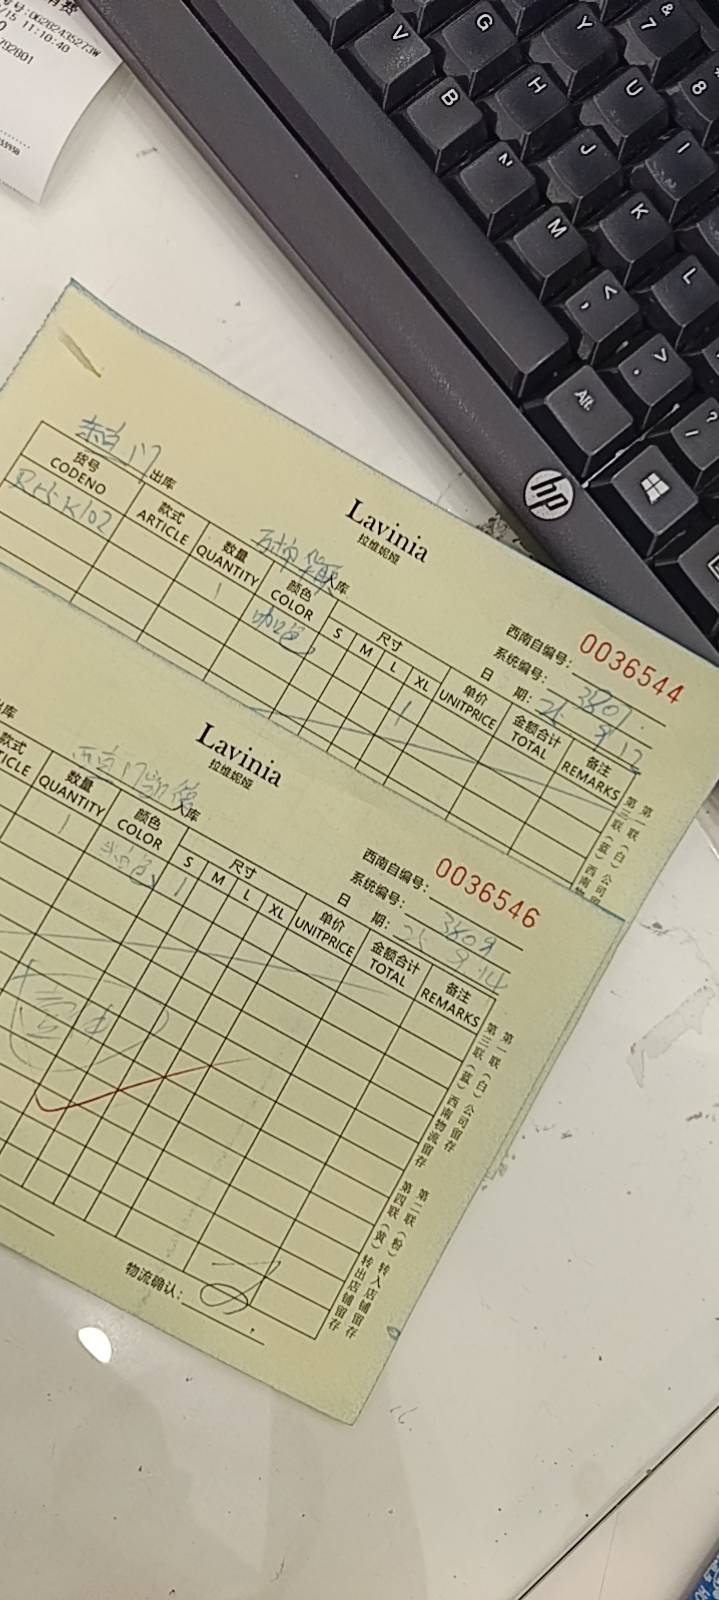 消费
号:06282435273W
/15 11:10:40
792801
出库
Lavinia
拉维妮娅
入库
西南自编号:
0036544
系统编号: 3801
日 期: 25 9 12
货号 款式 数量 颜色 尺寸 单价 金额合计 备注
CODENO ARTICLE QUANTITY COLOR S M L XL UNITPRICE TOTAL REMARKS
1 咖色 1
第一联(白)公司
第三联(蓝)西南
Lavinia
拉维妮娅
出库
入库
西南自编号:
0036546
系统编号: 3809
日 期: 25 9 14
款式 数量 颜色 尺寸 单价 金额合计 备注
TICLE QUANTITY COLOR S M L XL UNITPRICE TOTAL REMARKS
1 米色 1
第一联(白)公司留存 第二联(粉)转入店铺留存
第三联(蓝)西南物流留存 第四联(黄)转出店铺留存
物流确认:
V G Y & 7 * 8
B H U
N J I
M K
, < L
. > 
Alt / ?
hp